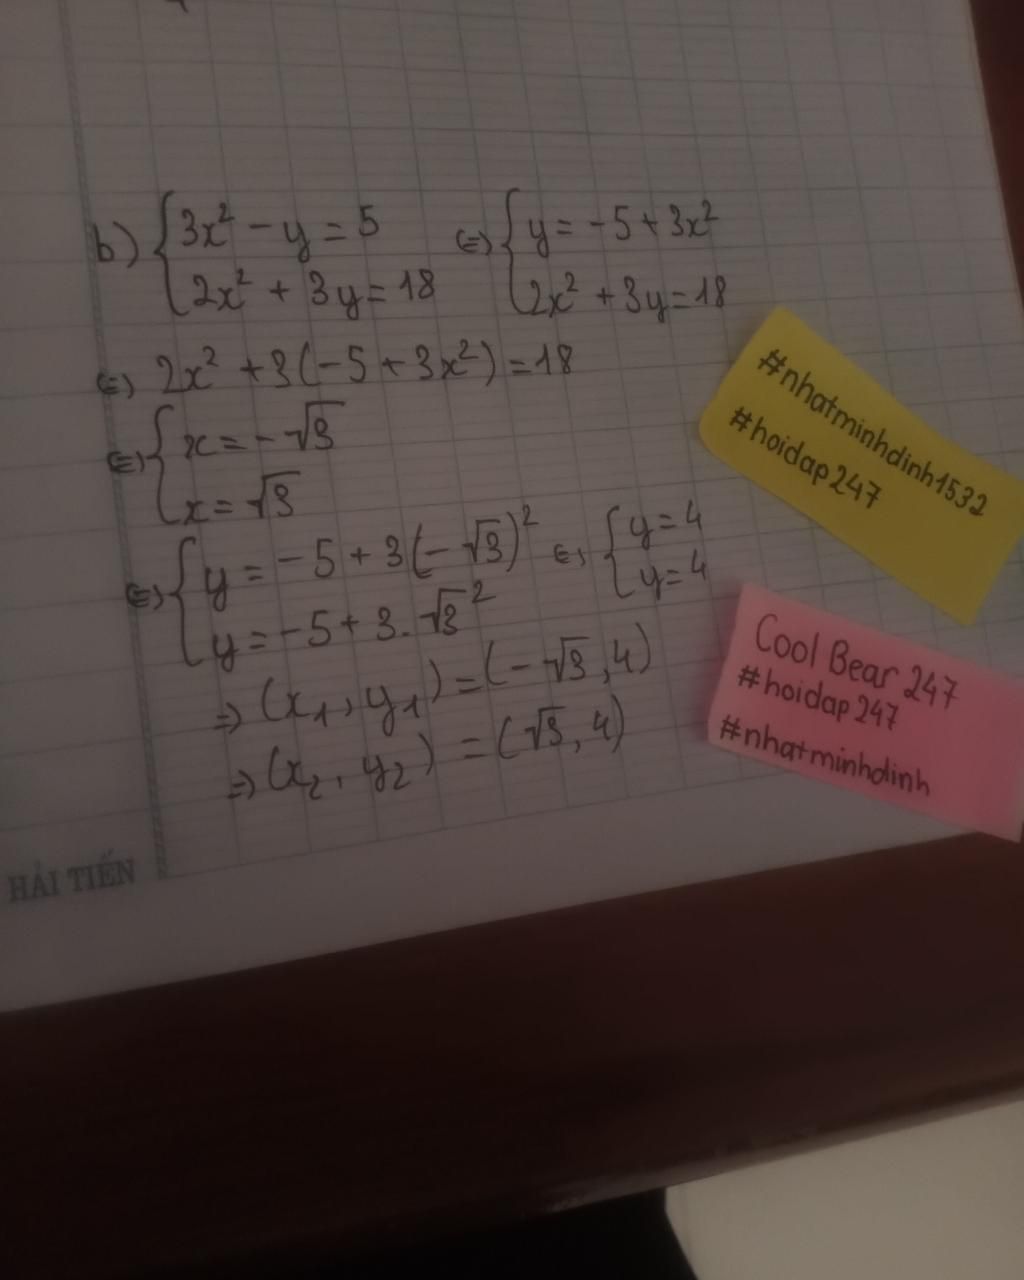 b) { 3x² - y = 5 (=) { y = -5 + 3x²
2x² + 3y = 18 2x² + 3y = 18
(=) 2x² + 3(-5 + 3x²) = 18
(=) { x = -√3
x = √3
(=) { y = -5 + 3(-√3)² (=) { y = 4
y = -5 + 3.√3² y = 4
=> (x₁, y₁) = (-√3, 4)
=> (x₂, y₂) = (√3, 4)
#nhatminhdinh1532
#hoidap247
Cool Bear 247
#hoidap247
#nhatminhdinh
HẢI TIẾN